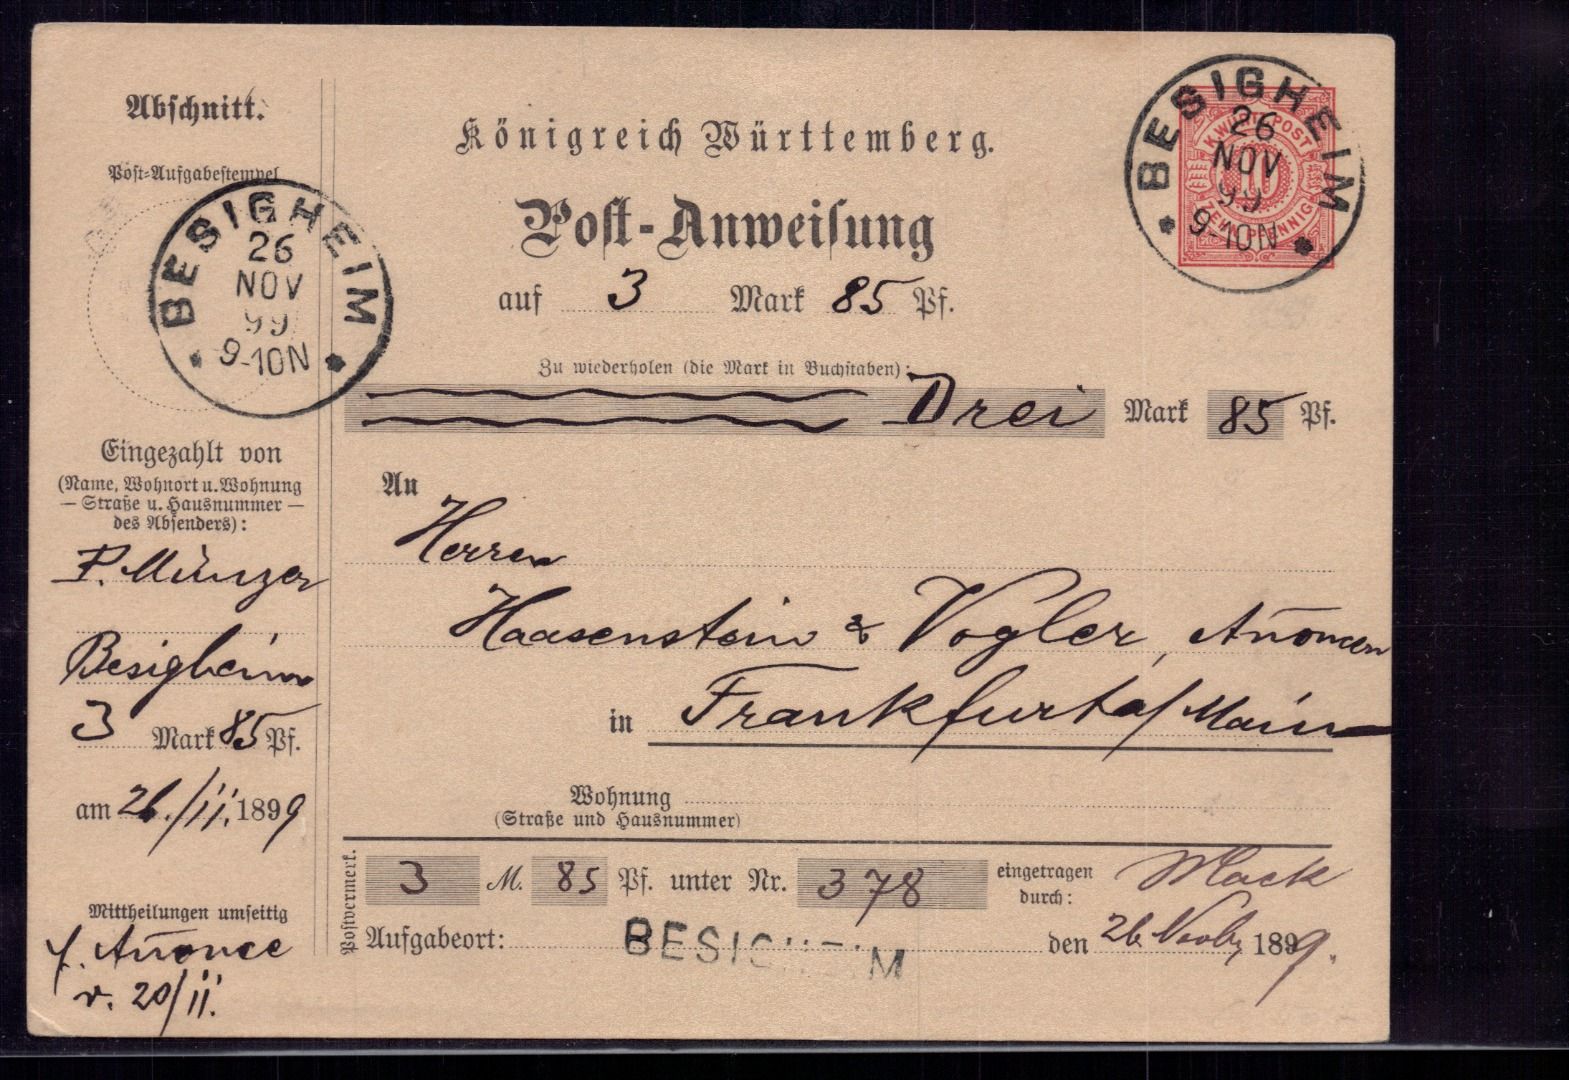 Abschnitt.
Post-Aufgabestempel
BESIGHEIM
26
NOV
99
9-10N
Eingezahlt von
(Name, Wohnort u. Wohnung
— Straße u. Hausnummer —
des Absenders):
P. Münzer
Besigheim
3 Mark 85 Pf.
am 26./11. 1899
Mittheilungen umseitig
f. Anonce
v. 20/11.
Königreich Württemberg.
Post-Anweisung
auf 3 Mark 85 Pf.
K. WÜRTT. POST
10
ZEHN PFENNIG
BESIGHEIM
26
NOV
99
9-10N
Zu wiederholen (die Mark in Buchstaben):
Drei Mark 85 Pf.
An
Herren
Haasenstein & Vogler, Anoncen
in Frankfurt a/Main
Wohnung
(Straße und Hausnummer)
Postvermerk.
3 M. 85 Pf. unter Nr. 378 eingetragen durch: Mack
Aufgabeort: BESIGHEIM den 26. Novbr 1899.